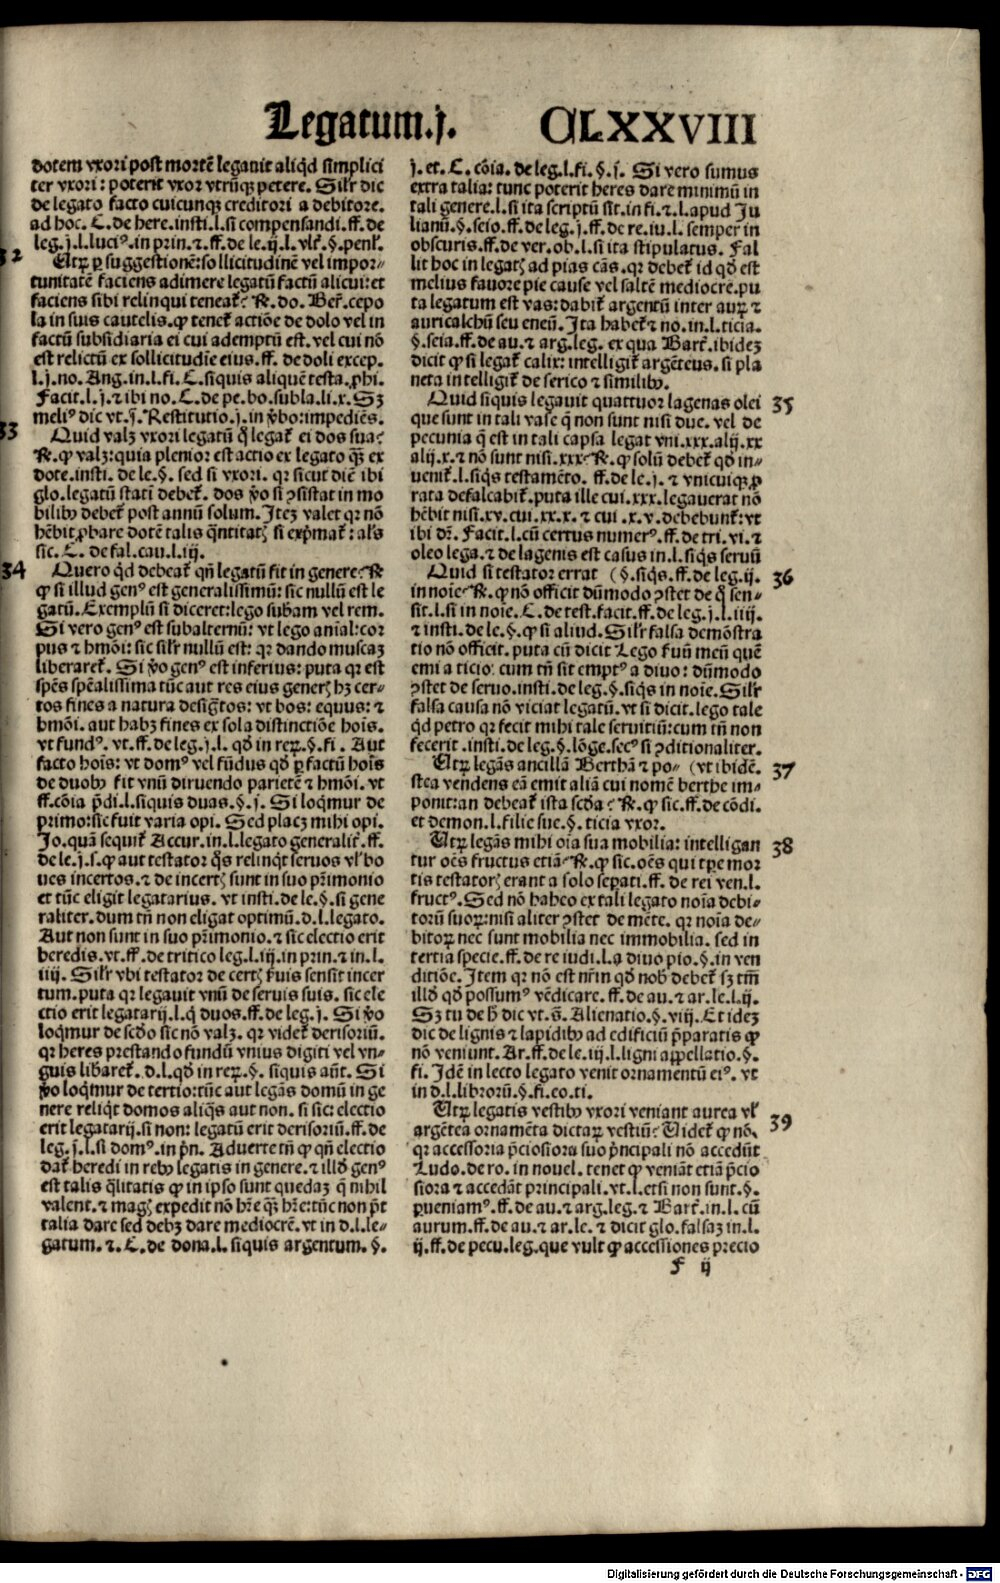 Legatum.j. CLXXVIII
dotem vxori post mortē legauit aliqd simplici
ter vxori: poterit vxor vtrūqꝫ petere. Silr dic
de legato facto cuicunqꝫ creditori a debitore.
ad hoc. C. de here. insti. l. si compensandi. ff. de
leg. j. l. luciꝰ. in prin. ⁊ ff. de le. ij. l. vlt. §. penl.
32
Utrꝫ ꝑ suggestionē: sollicitudinē vel impor⸗
tunitatē faciens adimere legatū factū alicui: et
faciens sibi relinqui teneat᷑. R. do. Ber. cepo
la in suis cautelis. ꝙ tenet᷑ actiōe de dolo vel in
factū subsidiaria ei cui ademptū est. vel cui nō
est relictū ex sollicitudīe eius. ff. de doli excep.
l. j. no. Ang. in. l. fi. C. siquis aliquē testa. ꝓhi.
Facit. l. j. ⁊ ibi no. C. de pe. bo. subla. li. x. Sꝫ
meliꝰ dic vt. s̄. Restitutio. j. in v̄bo: impediēs.
33
Quid valꝫ vxori legatū q̄ legat᷑ ei dos sua:
R. ꝙ valꝫ: quia plenior est actio ex legato qꝫ ex
dote. insti. de le. §. sed si vxori. qꝛ sicut diē ibi
glo. legatū statī debet᷑. dos v̄o si ꝯsistat in mo
bilibꝰ debet᷑ post annū solum. Iteꝫ valet qꝛ nō
hēbit ꝓbare dotē talis q̄ntitatꝭ si exp̄mat᷑: als
sic. C. de fal. cau. l. iij.
34
Quero qd debeat᷑ qn̄ legatū fit in genere: R
ꝙ si illud genꝰ est generalissimū: sic nullū est le
gatū. Exemplū si diceret: lego subam vel rem.
Si vero genꝰ est subalternū: vt lego anial: cor
pus ⁊ hmōi: sic silr nullū est: qꝛ dando muscaꝫ
liberaret᷑. Si v̄o genꝰ est inferius: puta qꝛ est
spēs spēalissima tūc aut res eius generꝭ hꝫ cer⸗
tos fines a natura desigtos: vt bos: equus: ⁊
hmōi. aut habꝫ fines ex sola distinctiōe hoīs.
vt fundꝰ. vt. ff. de leg. j. l. qd in reꝝ. §. fi. Aut
facto hoīs: vt domꝰ vel fūdus qd ꝑ factū hoīs
de duobꝰ fit vnū diruendo parietē ⁊ hmōi. vt
ff. cōia p̄di. l. siquis duas. §. j. Si loqmur de
primo: sic fuit varia opi. Sed placꝫ mihi opi.
Jo. quā sequit᷑ Accur. in. l. legato generalit᷑. ff.
de le. j. s. ꝙ aut testator q̄s relinqt seruos vl bo
ues incertos. ⁊ de incertꝭ sunt in suo pr̄imonio
et tūc eligit legatarius. vt insti. de le. §. si gene
raliter. dum tn̄ non eligat optimū. d. l. legato.
Aut non sunt in suo pr̄imonio. ⁊ sic electio erit
heredis. vt. ff. de tritico leg. l. iij. in prin. ⁊ in. l.
iiij. Silr vbi testator de certꝭ s̄uis sensit incer
tum. puta qꝛ legauit vnū de seruis suis. sic ele
ctio erit legatarij. l. q duos. ff. de leg. j. Si v̄o
loqmur de scdo sic nō valꝫ. qꝛ videt᷑ derisoriū.
qꝛ heres prestando fundū vnius digiti vel vn⸗
guis libaret᷑. d. l. qd in reꝝ. §. siquis aut̄. Si
v̄o loqmur de tertio: tūc aut legās domū in ge
nere reliqt domos aliqs aut non. si sic: electio
erit legatarij. si non: legatū erit derisoriū. ff. de
leg. j. l. si domꝰ. in pn̄. Aduerte tn̄ ꝙ qn̄ electio
dat᷑ heredi in rebꝰ legatis in genere. ⁊ illd genꝰ
est talis qlitatis ꝙ in ipso sunt quedaꝫ q nihil
valent. ⁊ magꝭ expedit nō hr̄e qꝫ hr̄e: tūc non p̄t
talia dare sed debꝫ dare mediocrē. vt in d. l. le⸗
gatum. ⁊. C. de dona. l. siquis argentum. §.
j. et. C. cōia. de leg. l. fi. §. s̄. Si vero sumus
extra talia: tunc poterit heres dare minimū in
tali genere. l. si ita scriptū sit. in fi. ⁊. l. apud Ju
lianū. §. scio. ff. de leg. j. ff. de re. iu. l. semper in
obscuris. ff. de ver. ob. l. si ita stipulatus. Fal
lit hoc in legatꝭ ad pias cās. qꝛ debet᷑ id qd est
melius fauore pie cause vel saltē mediocre. pu
ta legatum est vas: dabit᷑ argentū inter auꝝ ⁊
auricalchū seu eneū. Ita habet᷑ ⁊ no. in. l. ticia.
§. seia. ff. de au. ⁊ arg. leg. ex qua Bart᷑. ibideꝫ
dicit ꝙ si legat᷑ calix: intelligit᷑ argēteus. si pla
neta intelligit᷑ de serico ⁊ similibꝰ.
35
Quid siquis legauit quattuor lagenas olei
que sunt in tali vase q̄ non sunt nisi due. vel de
pecunia q̄ est in tali capsa legat vni. xxx. alij. xx
alij. x. ⁊ nō sunt nisi. xxx: R. ꝙ solū debet᷑ qd in⸗
uenit᷑. l. siqs testamēto. ff. de le. j. ⁊ vnicuiqꝫ ꝓ
rata defalcabit᷑. puta ille cui. xxx. legauerat nō
hēbit nisi. xv. cui. xx. x. ⁊ cui. x. v. debebunt᷑: vt
ibi dr̄. Facit. l. cū certus numerꝰ. ff. de tri. vi. ⁊
oleo lega. ⁊ de lagenis est casus in. l. siqs seruū
36
Quid si testator errat (§. siqs. ff. de leg. ij.
in noīe: R. ꝙ nō officit dūmodo ꝯstet de q̄ sen⸗
sit. l. si in noīe. C. de test. facit. ff. de leg. j. l. iiij.
⁊ insti. de le. §. ꝙ si aliud. Silr falsa demōstra
tio nō officit. puta cū dicit Lego s̄uū meū quē
emi a ticio: cum tn̄ sit emptꝰ a diuo: dūmodo
ꝯstet de seruo. insti. de leg. §. siqs in noīe. Silr
falsa causa nō viciat legatū. vt si dicit. lego tale
qd petro qꝛ fecit mihi tale seruitiū: cum tn̄ non
fecerit. insti. de leg. §. lōge. secꝰ si ꝯditionaliter.
37
Utrꝫ legās ancillā Berthā ⁊ po⸗ (vt ibidē.
stea vendens eā emit aliā cui nomē berthe im⸗
ponit: an debeat᷑ ista scda: R. ꝙ sic. ff. de cōdi.
et demon. l. filie sue. §. ticia vxor.
38
Utrꝫ legās mihi oīa sua mobilia: intelligan
tur oēs fructus etiā: R. ꝙ sic. oēs qui tꝑe mor
tis testatorꝭ erant a solo seꝑati. ff. de rei ven. l.
fructꝰ. Sed nō habeo ex tali legato noīa debi⸗
torū suoꝝ: nisi aliter ꝯstet de mēte. qꝛ noīa de⸗
bitoꝝ nec sunt mobilia nec immobilia. sed in
tertia specie. ff. de re iudi. l. a diuo pio. §. in ven
ditiōe. Item qꝛ nō est nr̄m qd nobꝭ debet᷑ sꝫ tm̄
illd qd possumꝰ vēdicare. ff. de au. ⁊ ar. le. l. ij.
Sꝫ tu de h̄ dic vt. s̄. Alienatio. §. viij. Et ideꝫ
dic de lignis ⁊ lapidibꝰ ad edificiū p̄paratis ꝙ
nō veniunt. Ar. ff. de le. iij. l. ligni appellatio. §.
fi. Idē in lecto legato venit ornamentū eiꝰ. vt
in d. l. librorū. §. fi. eo. ti.
39
Utrꝫ legatis vestibꝰ vxori veniant aurea vl
argētea ornamēta dictaꝝ vestiū: Videt᷑ ꝙ nō.
qꝛ accessoria p̄ciosiora suo p̄ncipali nō accedūt
Ludo. de ro. in nouel. tenet ꝙ veniāt etiā p̄cio
siora ⁊ accedāt principali. vt. l. etsi non sunt. §.
ꝑueniamꝰ. ff. de au. ⁊ arg. leg. ⁊ Bart᷑. in. l. cū
aurum. ff. de au. ⁊ ar. le. ⁊ dicit glo. falsaꝫ in. l.
ij. ff. de pecu. leg. que vult ꝙ accessiones precio
F ij
Digitalisierung gefördert durch die Deutsche Forschungsgemeinschaft - DFG